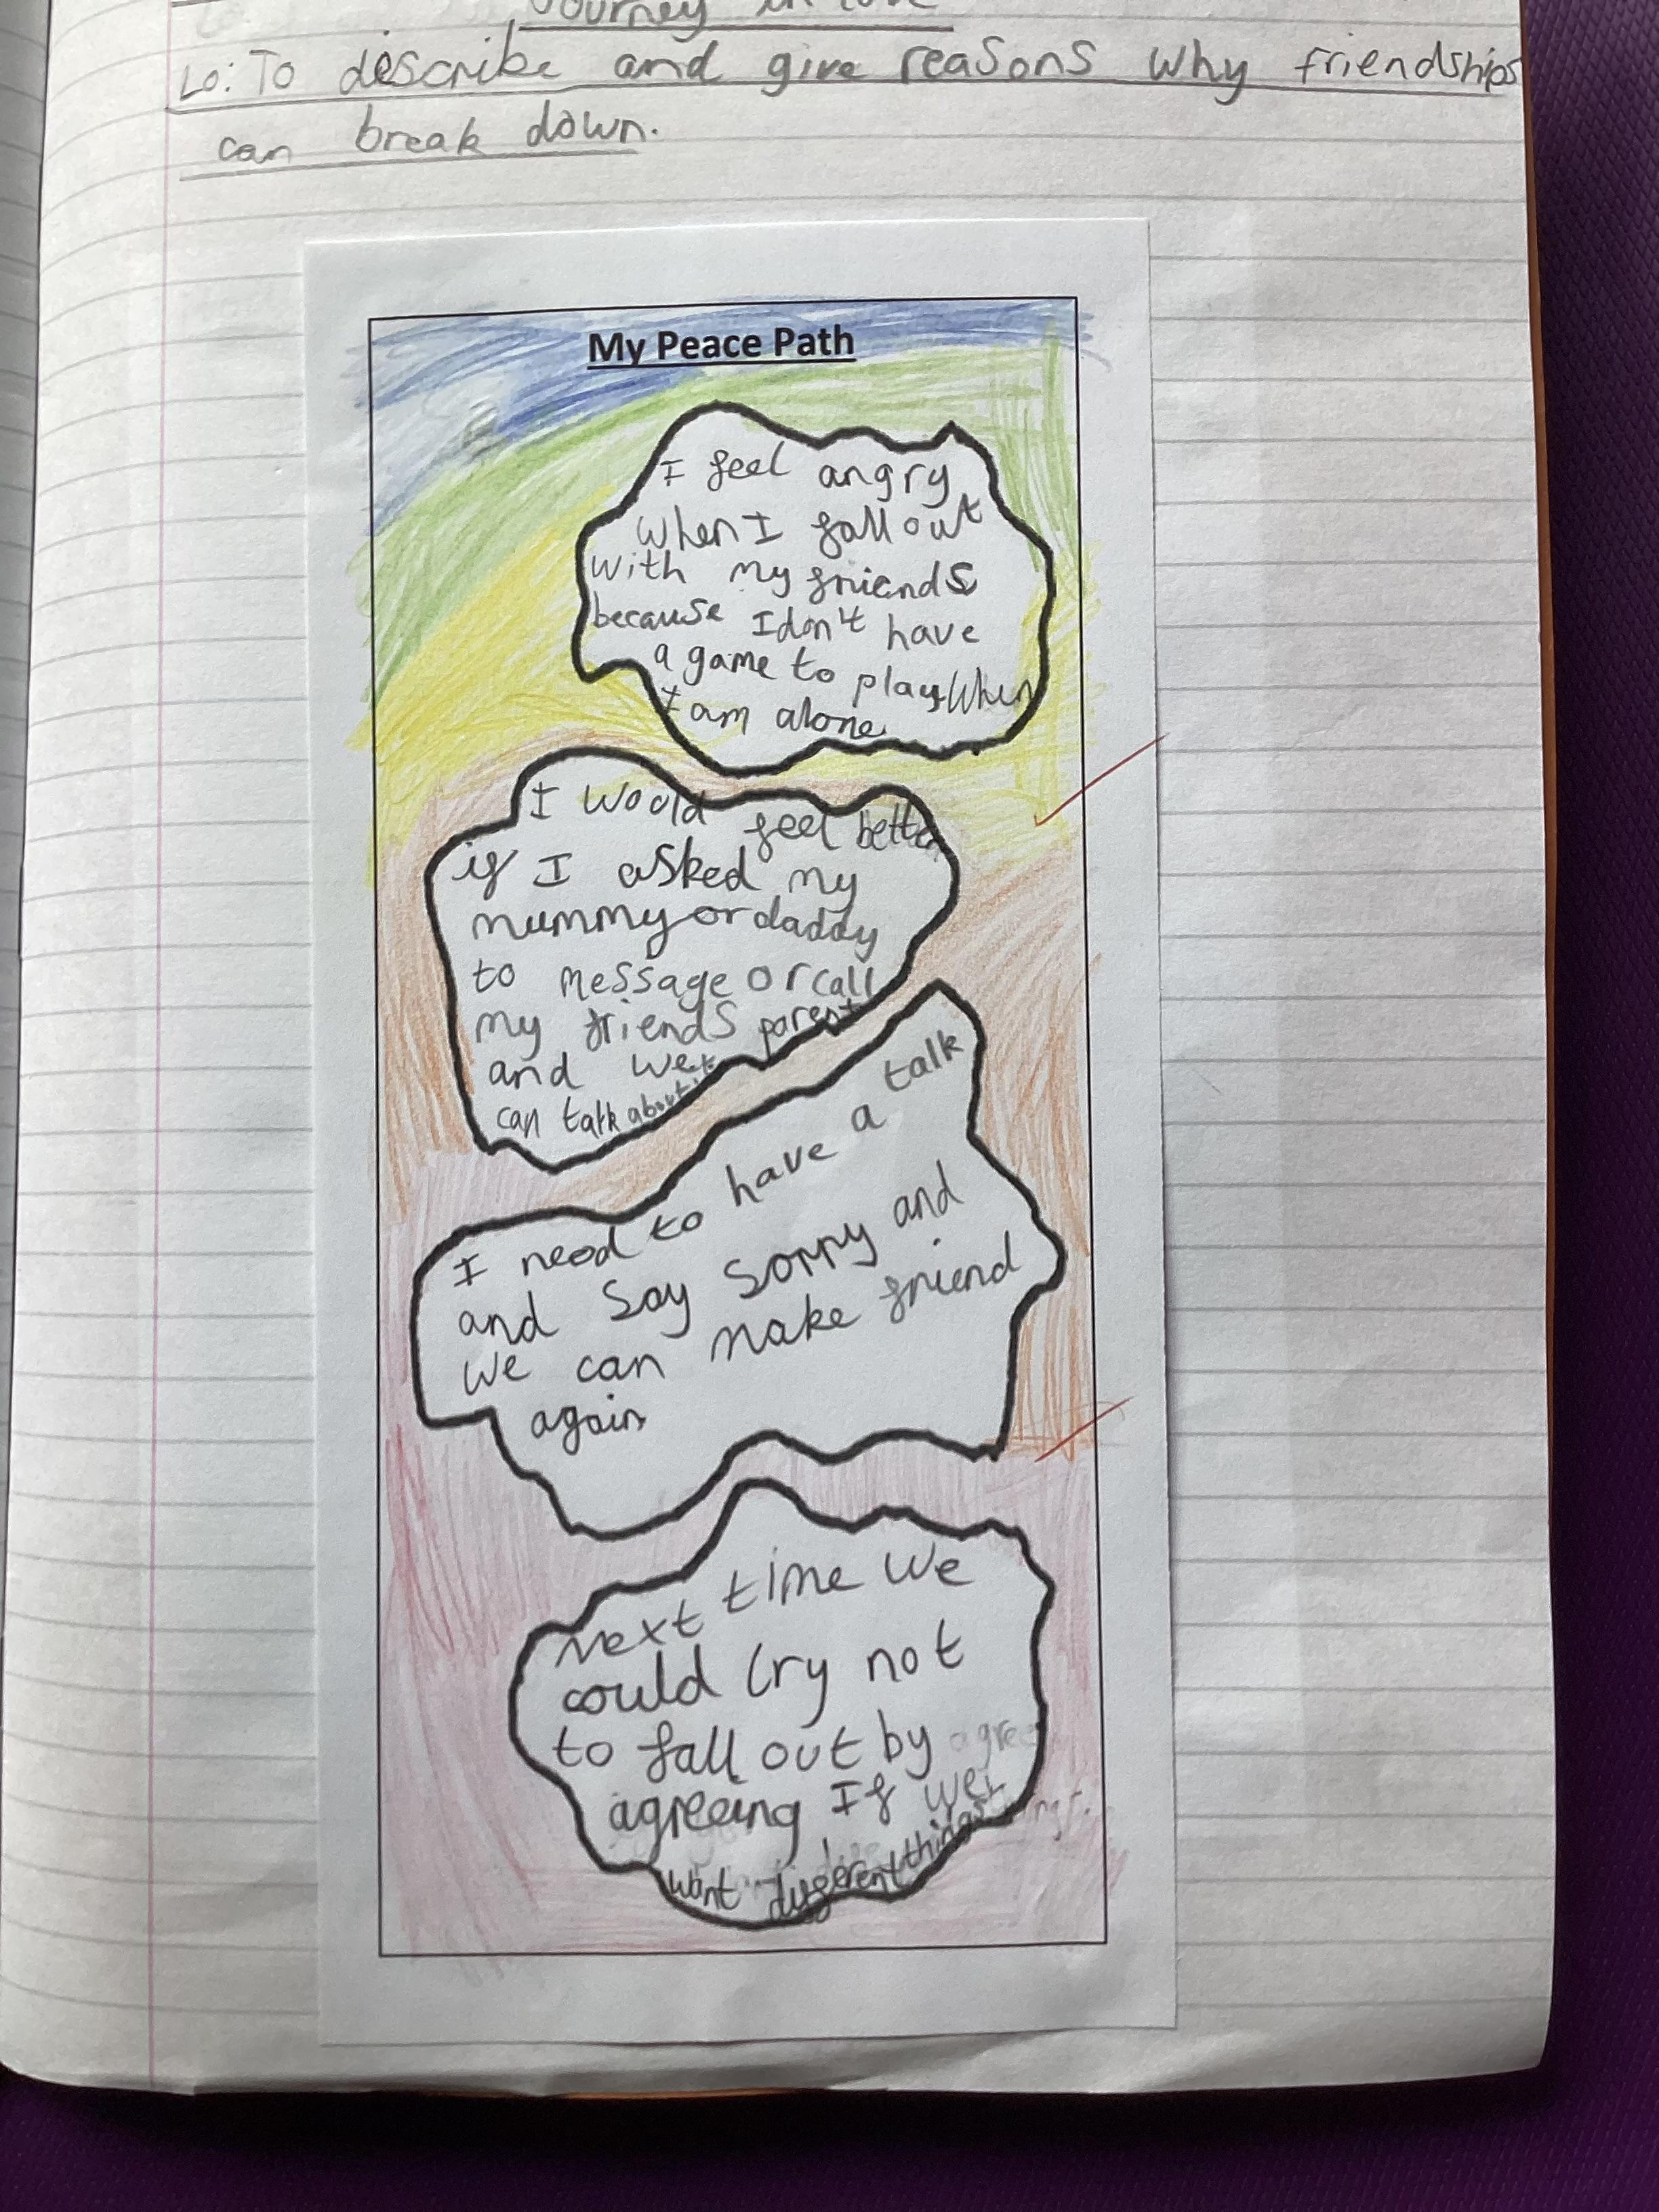 Journey in love
Lo: To describe and give reasons why friendships
can break down.
My Peace Path
I feel angry
when I fall out
with my friends
because I don't have
a game to play when
I am alone
I would feel better
if I asked my
mummy or daddy
to message or call
my friends parent
and we
can talk about it
I need to have a talk
and say sorry and
we can make friend
again
Next time we
could try not
to fall out by agree
agreeing If we
want different things